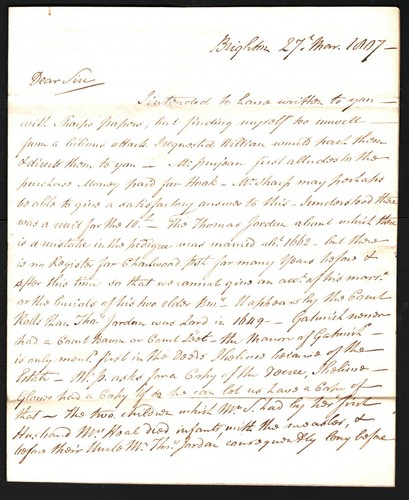 Brighton 27.r Mar. 1807 —
Dear Sir
I intended to have written to you —
with Sharps papers, but finding myself too unwell
from a bilious attack I requested William would pack them
& direct them to you — Mr. first alludes to the
purchase Money paid for — Mr. Sharp may perhaps
be able to give a satisfactory answer to this — I understood there
was a suit for the 10th — The Thomas Jordan about which there
is a mistake in the pedigree was married abt. 1662 — but there
is no Register for Charlwood psh for many Years before &
after this time so that we cannot give an acct. of his marr.
or the burials of his two elder It appears by the Court
Rolls that Thos. Jordan was Lord in 1649 — Gatwick never
had a Court Baron or Court Leet — the Manor of Gatwick
is only ment. in the Deeds I believe because of the
Estate — Mr. p. asks for a Copy of the Decree, I believe
Glover had a Copy if so he can let us have a Copy of
that — The two children which Mrs. S. had by her first
Husband Mr. died infants with the measles, &
before their Uncle Mr. Thos. Jordan consequently long before